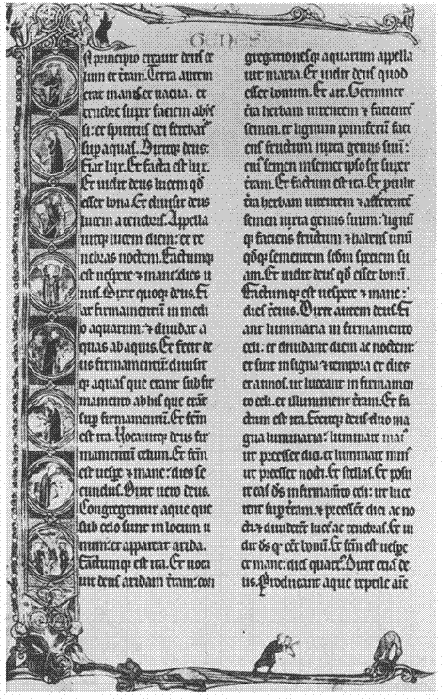 GENES
N principio creauit deus ce
lum et t̄ram. Terra autem
erat inanis et uacua. et
tenebre super faciem abys
si: et spiritus dei ferebatᷣ
sup aquas. Dixitqꝫ deus:
Fiat lux. Et facta est lux.
Et uidit deus lucem qđ
esset bona. Et diuisit deus
lucem a tenebris. Appella
uitqꝫ lucem diem: et te
nebras noctem. Factumqꝫ
est uespere ⁊ mane dies u
nus. Dixit quoqꝫ deus. Fi
at firmamentū in medi
o aquarum: ⁊ diuidat a
quas ab aquis. Et fecit de
us firmamentū: diuisit
qꝫ aquas que erant sub fir
mamento ab his que erāt
suꝑ firmamentū. Et fc̄m
est ita. Uocauitqꝫ deus fir
mamentū celum. Et fc̄m
est uesꝑe ⁊ mane: dies se
cundus. Dixit uero deus.
Congregentur aque que
sub celo sunt in locum u
num: et appareat arida.
Factumqꝫ est ita. Et uoca
uit deus aridam t̄ram: con
gregationesqꝫ aquarum appella
uit maria. Et uidit deus quod
esset bonum. Et ait. Germinet
t̄ra herbam uirentem ⁊ facientē
semen. et lignum pomiferū faci
ens fructum iuxta genus suū:
cuiꝰ semen in semetipso sit super
t̄ram. Et factum est ita. Et ꝓtulit
t̄ra herbam uirentem ⁊ afferentē
semen iuxta genus suum: lignū
qꝫ faciens fructum ⁊ habens unū
qđqꝫ sementem scđm speciem su
am. Et uidit deus qđ esset bonū.
Factumqꝫ est uespere ⁊ mane:
dies tercius. Dixit autem deus. Fi
ant luminaria in firmamento
celi. et diuidant diem ac noctem:
et sint in signa ⁊ tempora et dies
et annos. ut luceant in firmamen
to celi. et illuminent t̄ram. Et fa
ctum est ita. Fecitqꝫ deus duo ma
gna luminaria: luminare maiꝰ
ut p̄esset diei. et luminare minꝰ
ut p̄esset nocti. Et stellas. Et posu
it eas đs in firmam̄to celi: ut luce
rent suꝑ t̄ram. ⁊ p̄essent diei ac no
cti. ⁊ diuiderēt lucē ac tenebras. Et ui
dit đs qꝫ eēt bonū. Et fc̄m est uesꝑe
et mane: dies quartꝰ. Dixit eciā de
us. Producant aque reptile aīe